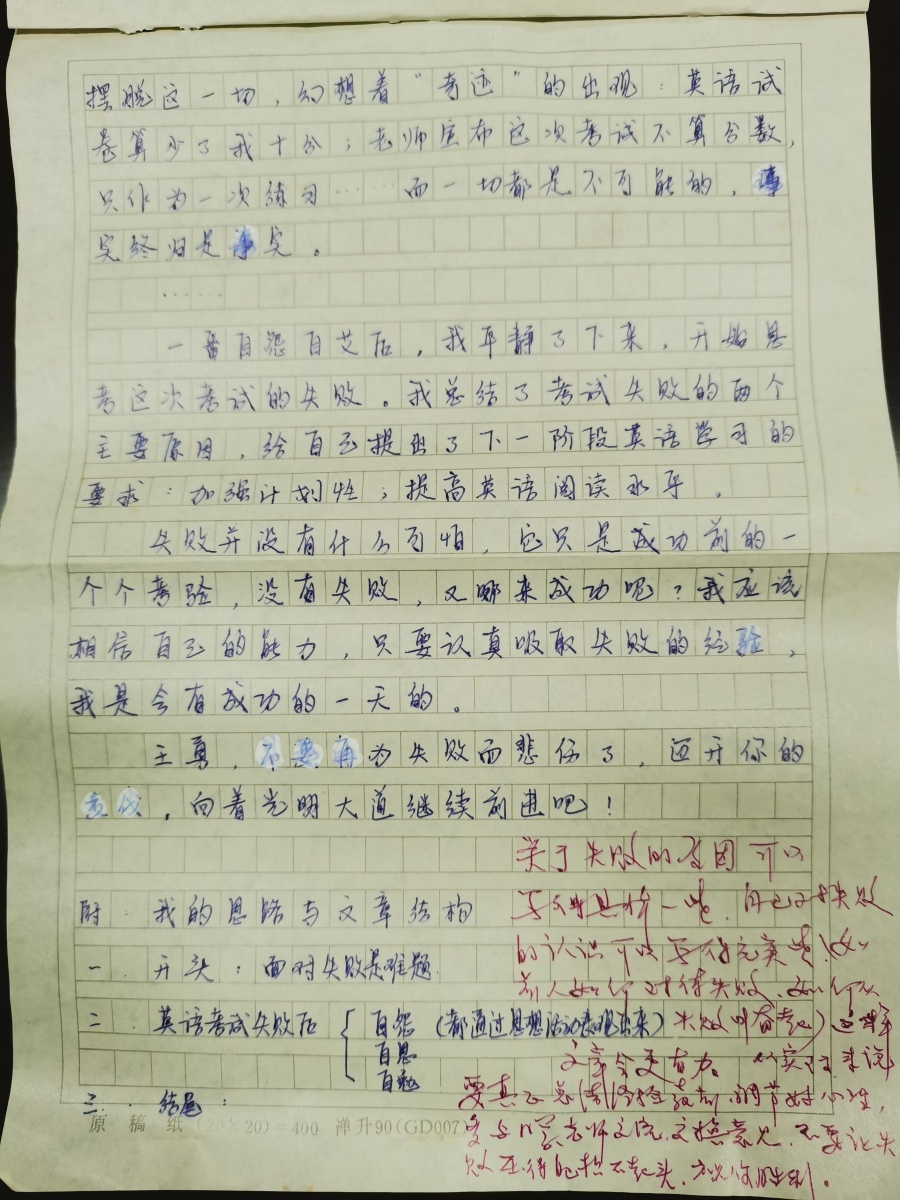 摆脱这一切，幻想着“奇迹”的出现：英语试
卷算少了我十分；老师宣布这次考试不算分数，
只作为一次练习……而一切都是不可能的，事
实终归是事实。
……
一番自怨自艾后，我平静了下来，开始思
考这次考试的失败。我总结了考试失败的两个
主要原因，给自己提出了下一阶段英语学习的
要求：加强计划性；提高英语阅读水平。
失败并没有什么可怕，它只是成功前的一
个个考验，没有失败，又哪来成功呢？我应该
相信自己的能力，只要认真吸取失败的经验，
我是会有成功的一天的。
王勇，不要再为失败而悲伤了，迈开你的
，向着光明大道继续前进吧！
关于失败的原因可以
写得具体一些，自己对失败
的认识可以写得完美些（如
前人如何对待失败，如何从
失败中奋起）这样
文章会更有力。从实际来说
要真正总结经验教训，调节好心理，
多与同学老师交流，交换意见，不要让失
败压得抬不起头，
附：我的思路与文章结构
一．开头：面对失败是难题．
二．英语考试失败后｛自怨（都通过思想活动表现出来）
自思
自勉
三．结尾：
原稿纸(20×20)=400 洋升90(GD007)